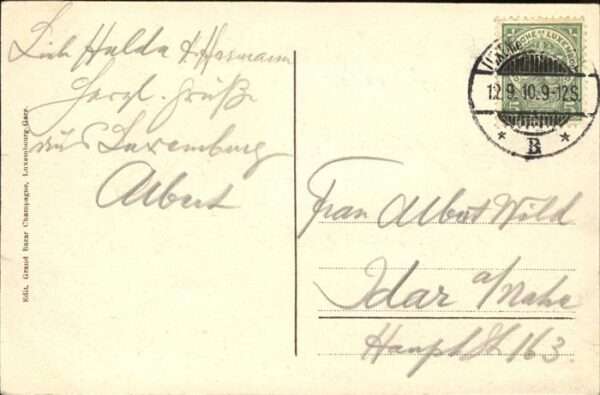 Lieb Hulda & Hermann
Herzl. Grüße
aus Luxemburg
Albert
Edit. Grand Bazar Champagne, Luxembourg-Gare.
12.9.10.9-12S.
* B *
Frau Albert Wild
Idar a/Nahe
Hauptstr 163.